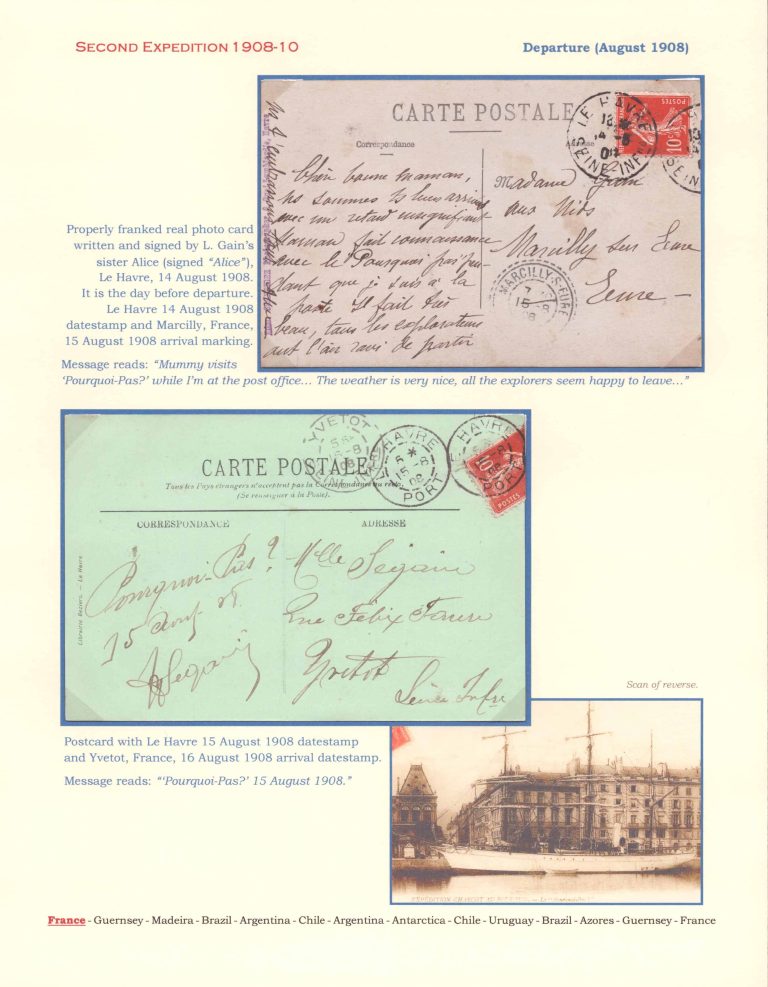 SECOND EXPEDITION 1908-10
Departure (August 1908)
CARTE POSTALE
Correspondance
Adresse
LE HAVRE
SEINE INFRE
10c
POSTES
Chère bonne maman,
ns sommes bien arrivés
avec un retard insignifiant
Maman fait connaissance
avec le Pourquoi pas pen-
dant que je suis à la
poste Il fait très
beau, tous les explorateurs
ont l'air ravi de partir
Madame Gain
aux Nids
Marcilly sur Eure
Eure
MARCILLY-S-EURE
7
15 -8
08
Properly franked real photo card
written and signed by L. Gain's
sister Alice (signed “Alice”),
Le Havre, 14 August 1908.
It is the day before departure.
Le Havre 14 August 1908
datestamp and Marcilly, France,
15 August 1908 arrival marking.
Message reads: “Mummy visits
‘Pourquoi-Pas?’ while I'm at the post office... The weather is very nice, all the explorers seem happy to leave...”
YVETOT
HAVRE
15 -8
08
PORT
HAVRE
PORT
10c
POSTES
CARTE POSTALE
Tous les Pays étrangers n'acceptent pas la Correspondance au recto.
(Se renseigner à la Poste).
CORRESPONDANCE
ADRESSE
Librairie Béziers. — Le Havre
Pourquoi-Pas?
15 Août 08
Mlle Segain
Rue Félix Faure
Yvetot
Seine Infre
Scan of reverse.
Postcard with Le Havre 15 August 1908 datestamp
and Yvetot, France, 16 August 1908 arrival datestamp.
Message reads: “‘Pourquoi-Pas?’ 15 August 1908.”
EXPÉDITION CHARCOT
France - Guernsey - Madeira - Brazil - Argentina - Chile - Argentina - Antarctica - Chile - Uruguay - Brazil - Azores - Guernsey - France